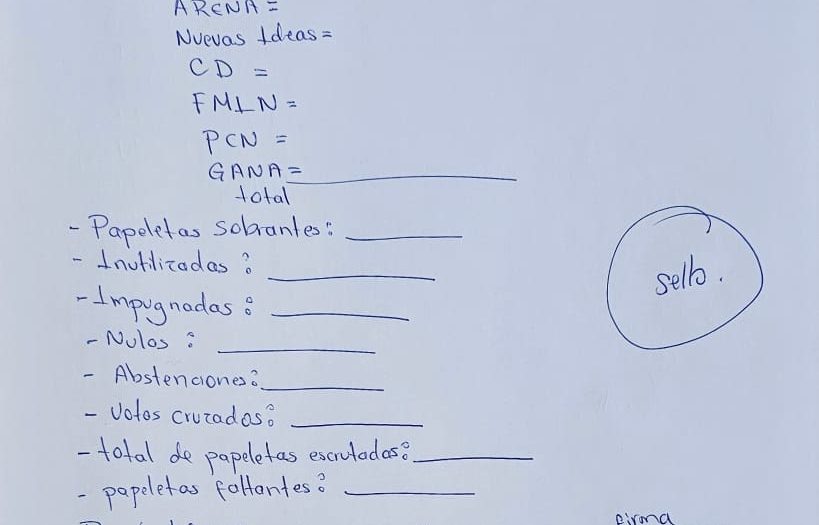 ARENA =
Nuevas Ideas =
CD =
FMLN =
PCN =
GANA =
total
- Papeletas sobrantes:
- Inutilizadas :
- Impugnadas :
- Nulos :
- Abstenciones:
- Votos cruzados:
- total de papeletas escrutadas:
- papeletas faltantes:
sello.
firma